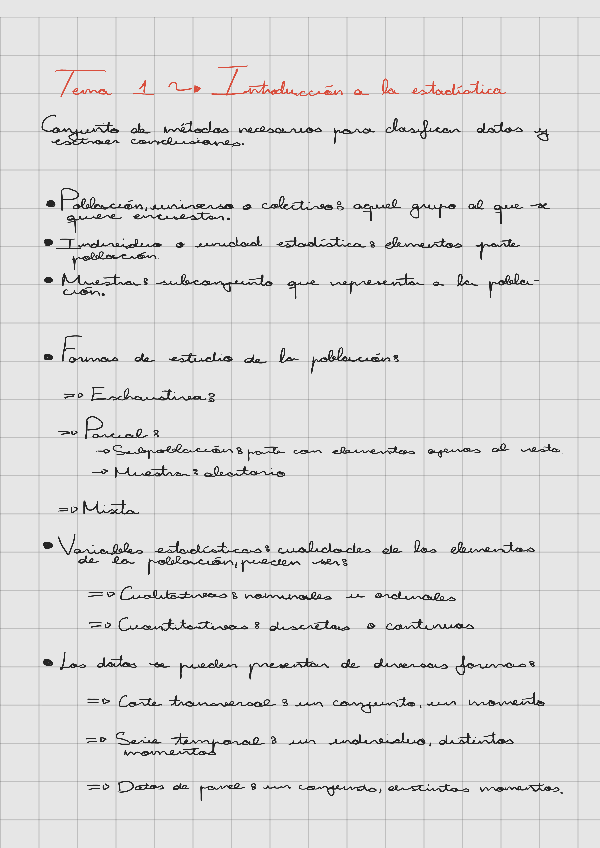 Tema 1 ~> Introducción a la estadística
Conjunto de métodos necesarios para clasificar datos y
extraer conclusiones.
• Población, universo o colectivo: aquel grupo al que se
quiere encuestar.
• Individuo o unidad estadística: elementos parte
población.
• Muestra: subconjunto que representa a la pobla-
ción.
• Formas de estudio de la población:
=> Exhaustiva:
=> Parcial:
-> Subpoblación: parte con elementos ajenos al resto
-> Muestra: aleatorio
=> Mixta
• Variables estadísticas: cualidades de los elementos
de la población, pueden ser:
=> Cualitativas: nominales u ordinales
=> Cuantitativas: discretas o continuas
• Los datos se pueden presentar de diversas formas:
=> Corte transversal: un conjunto, un momento
=> Serie temporal: un individuo, distintos
momentos
=> Datos de panel: un conjunto, distintos momentos.